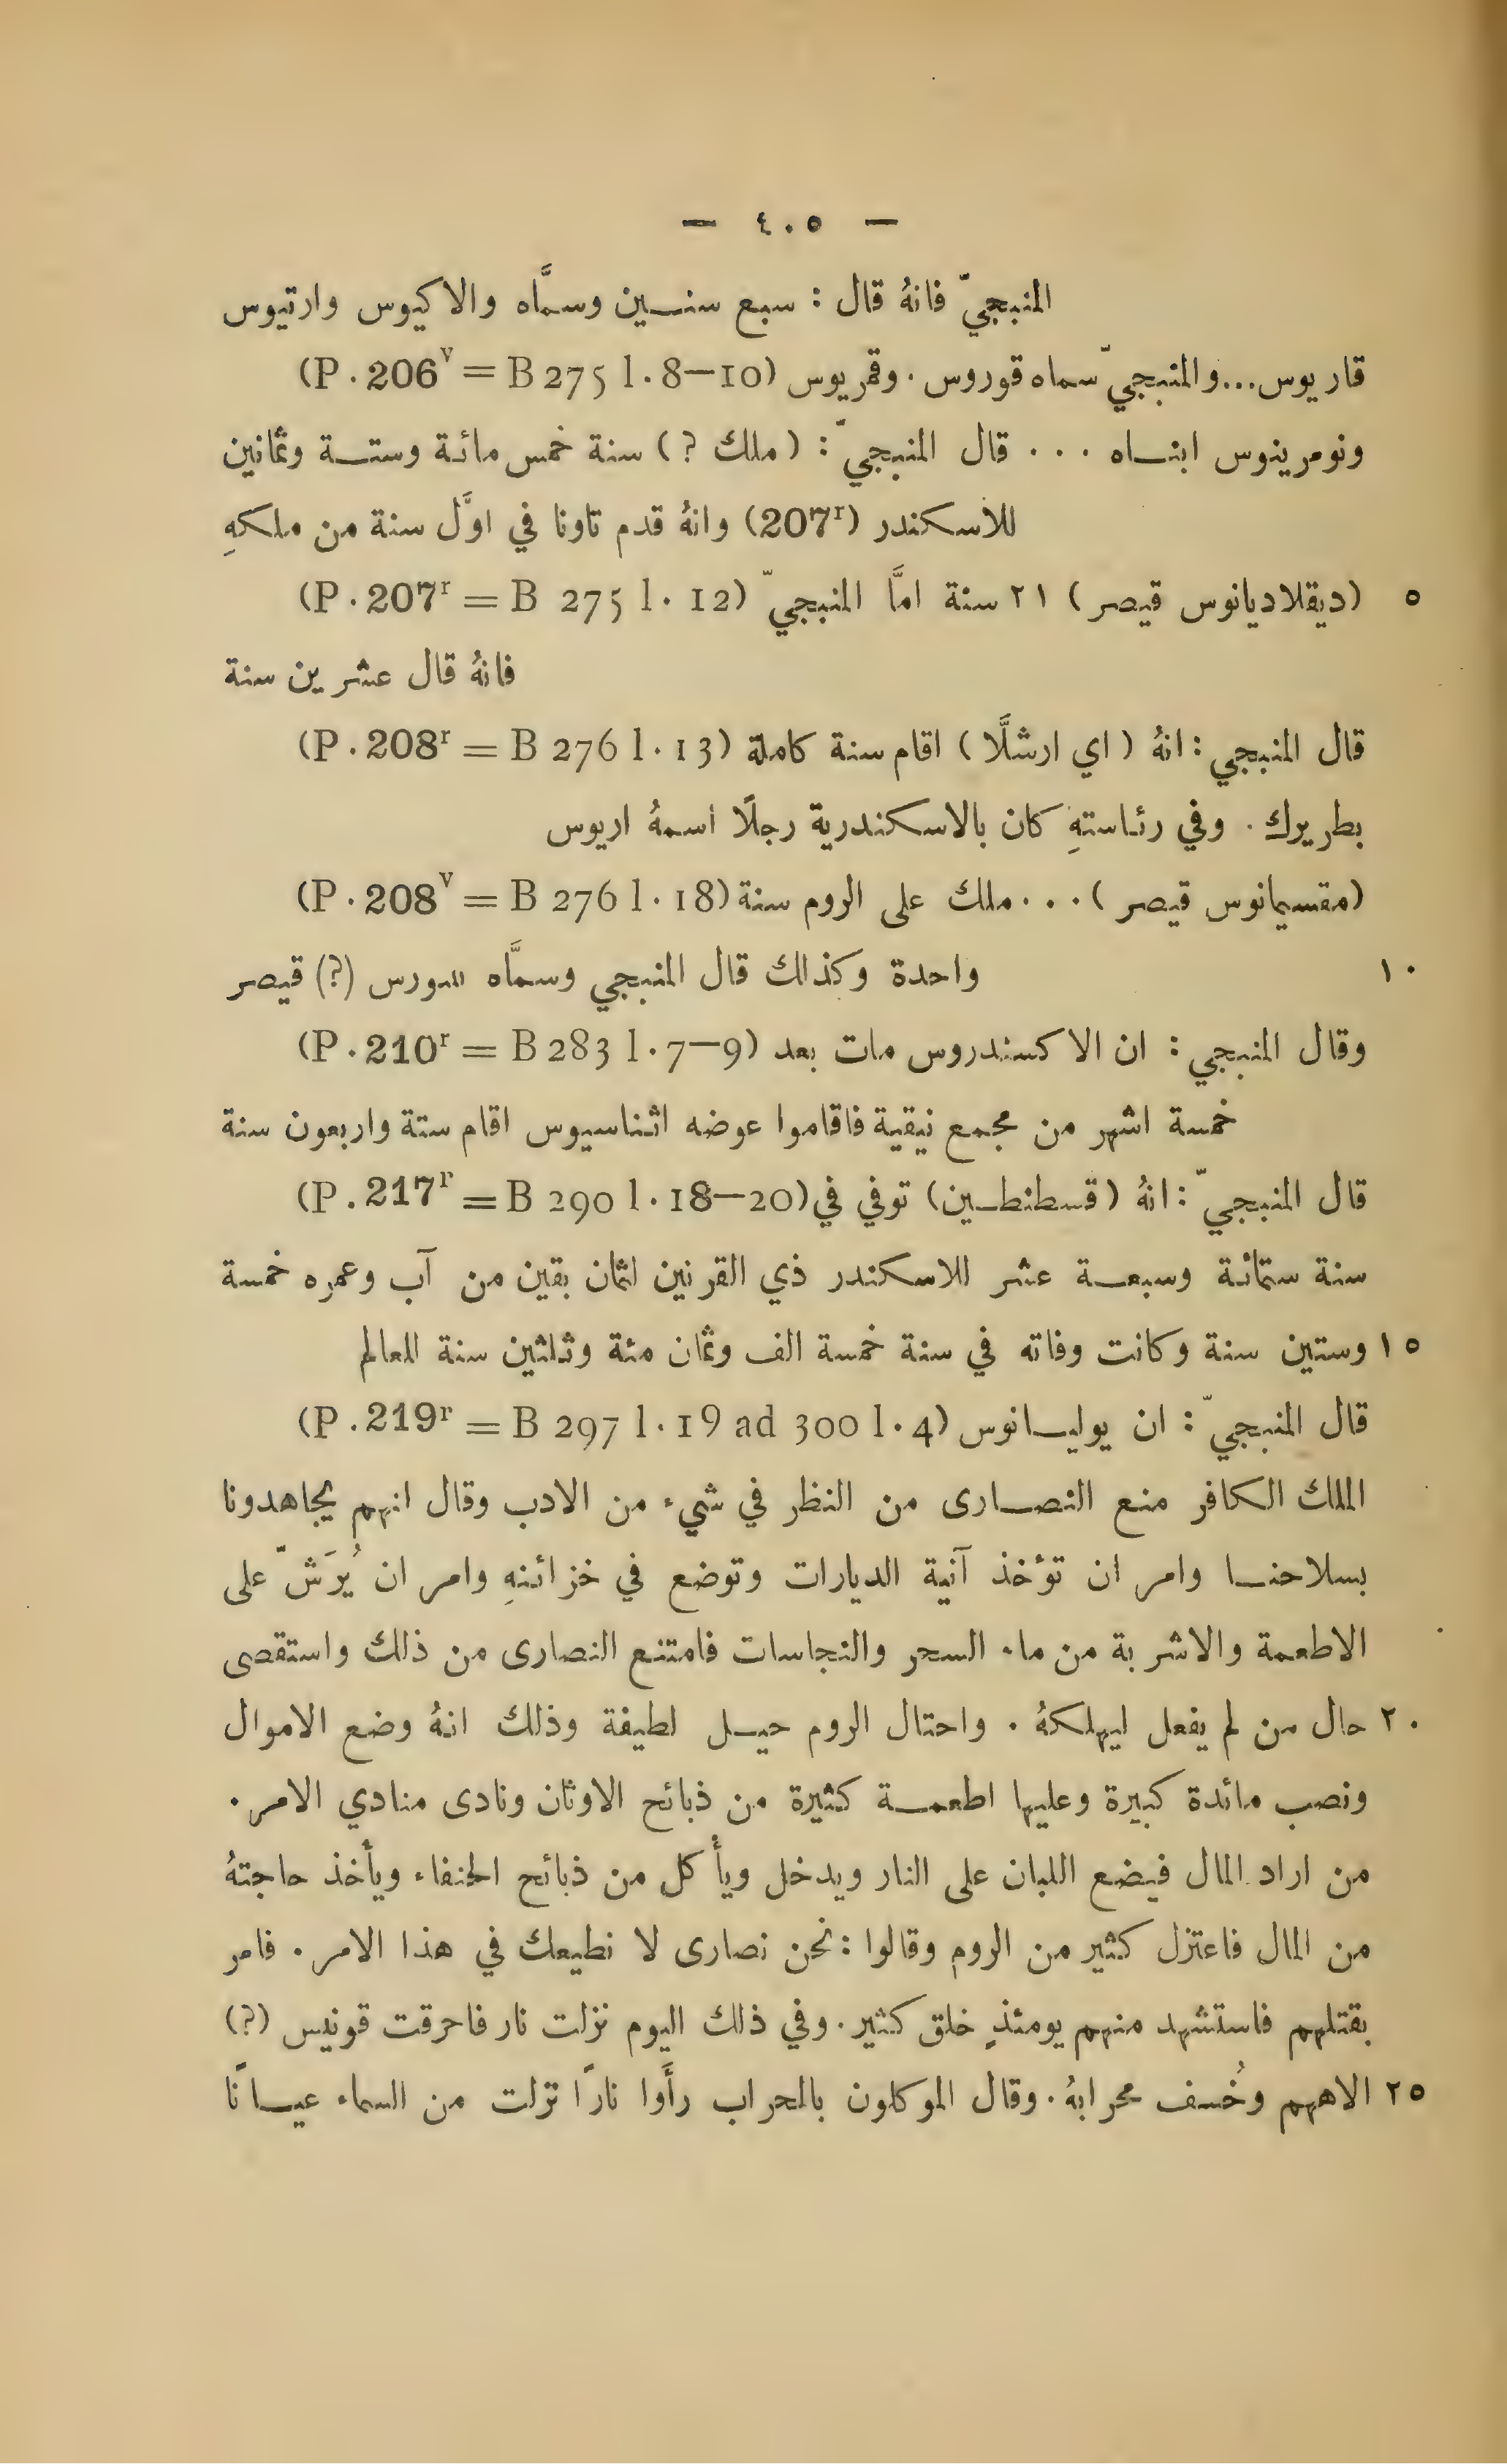 — ٤٠٥ —
المنبجيّ فانهُ قال : سبع سنــين وسمَّاه والاكيوس وارتيوس
(P. 206ᵛ = B 275 l. 8—10) قاريوس...والمنبجيّ سماه قوروس . وقمريوس
ونومرينوس ابنــاه . . . قال المنبجيّ : ( ملك ? ) سنة خمس مائة وستــة وثمانين
للاسكندر (207ʳ) وانهُ قدم تاونا في اوَّل سنة من ملكهِ
٥ (P. 207ʳ = B 275 l. 12) (ديقلاديانوس قيصر ) ٢١ سنة امَّا المنبجيّ
فانهُ قال عشرين سنة
(P. 208ʳ = B 276 l. 13) قال المنبجي : انهُ ( اي ارشلَّا ) اقام سنة كاملة
بطريرك . وفي رئاستهِ كان بالاسكندرية رجلًا اسمهُ اريوس
(P. 208ᵛ = B 276 l. 18) (مقسيمانوس قيصر ) . . . ملك على الروم سنة
١٠ واحدة وكذالك قال المنبجي وسمَّاه سورس (?) قيصر
(P. 210ʳ = B 283 l. 7—9) وقال المنبجي : ان الاكسندروس مات بعد
خمسة اشهر من مجمع نيقية فاقاموا عوضه اثناسيوس اقام ستة واربعون سنة
(P. 217ʳ = B 290 l. 18—20) قال المنبجيّ : انهُ ( قسطنطــين ) توفي في
سنة ستمائة وسبعــة عشر للاسكندر ذي القرنين لثمان بقين من آب وعمره خمسة
١٥ وستين سنة وكانت وفاته في سنة خمسة الف وثمان مئة وثلثين سنة للعالم
(P. 219ʳ = B 297 l. 19 ad 300 l. 4) قال المنبجيّ : ان يوليــانوس
الملك الكافر منع النصــارى من النظر في شيء من الادب وقال انهم يجاهدونا
بسلاحنــا وامر ان تؤخذ آنية الديارات وتوضع في خزائنهِ وامر ان يُرَشّ على
الاطعمة والاشربة من ماء السحر والنجاسات فامتنع النصارى من ذلك واستقصى
٢٠ حال من لم يفعل ليهلكهُ . واحتال الروم حيــل لطيفة وذلك انهُ وضع الاموال
ونصب مائدة كبيرة وعليها اطعمــة كثيرة من ذبائح الاوثان ونادى منادي الامر .
من اراد المال فيضع اللبان على النار ويدخل ويأكل من ذبائح الحنفاء ويأخذ حاجتهُ
من المال فاعتزل كثير من الروم وقالوا : نحن نصارى لا نطيعك في هذا الامر . فامر
بقتلهم فاستشهد منهم يومئذٍ خلق كثير . وفي ذلك اليوم نزلت نار فاحرقت قونيس (?)
٢٥ الاههم وخُسف محرابهُ . وقال الموكلون بالمحراب رأَوا نارًا نزلت من السماء عيــانًا